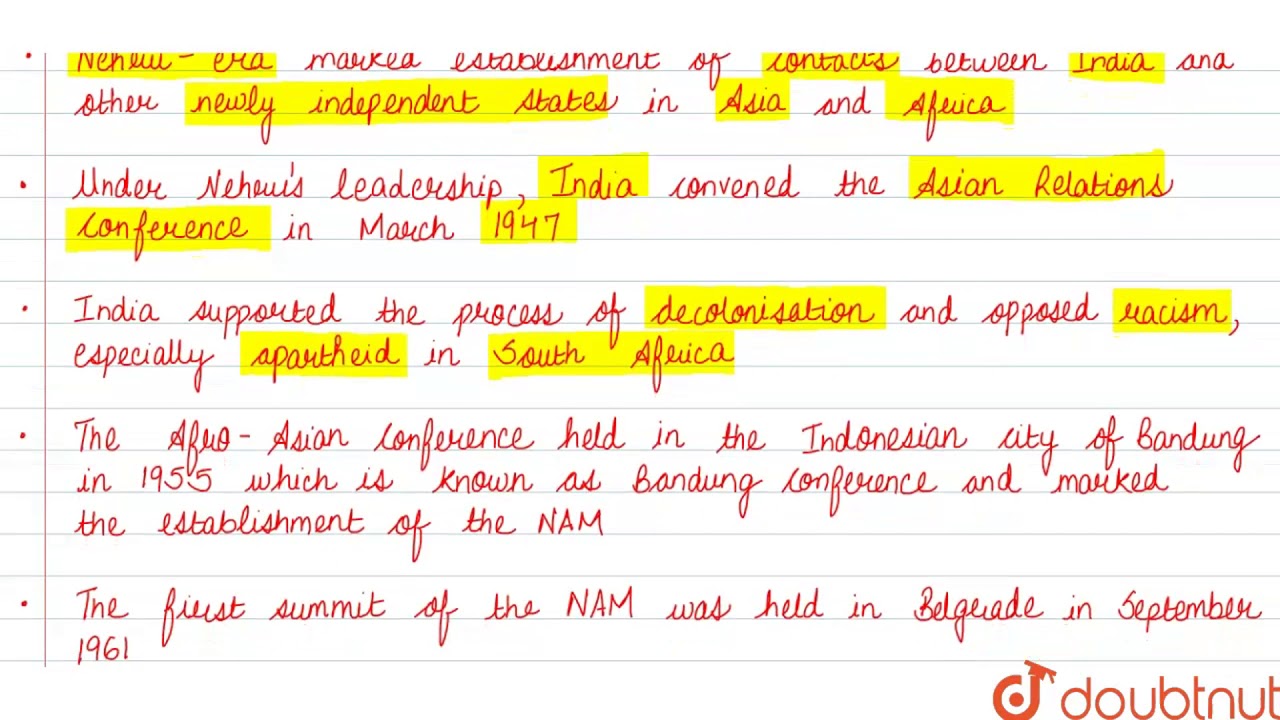 • Nehru - era marked establishment of contacts between India and
other newly independent states in Asia and Africa
• Under Nehru's leadership, India convened the Asian Relations
conference in March 1947
• India supported the process of decolonisation and opposed racism,
especially apartheid in South Africa
• The Afro - Asian conference held in the Indonesian city of Bandung
in 1955 which is known as Bandung conference and marked
the establishment of the NAM
• The first summit of the NAM was held in Belgrade in September
1961
doubtnut